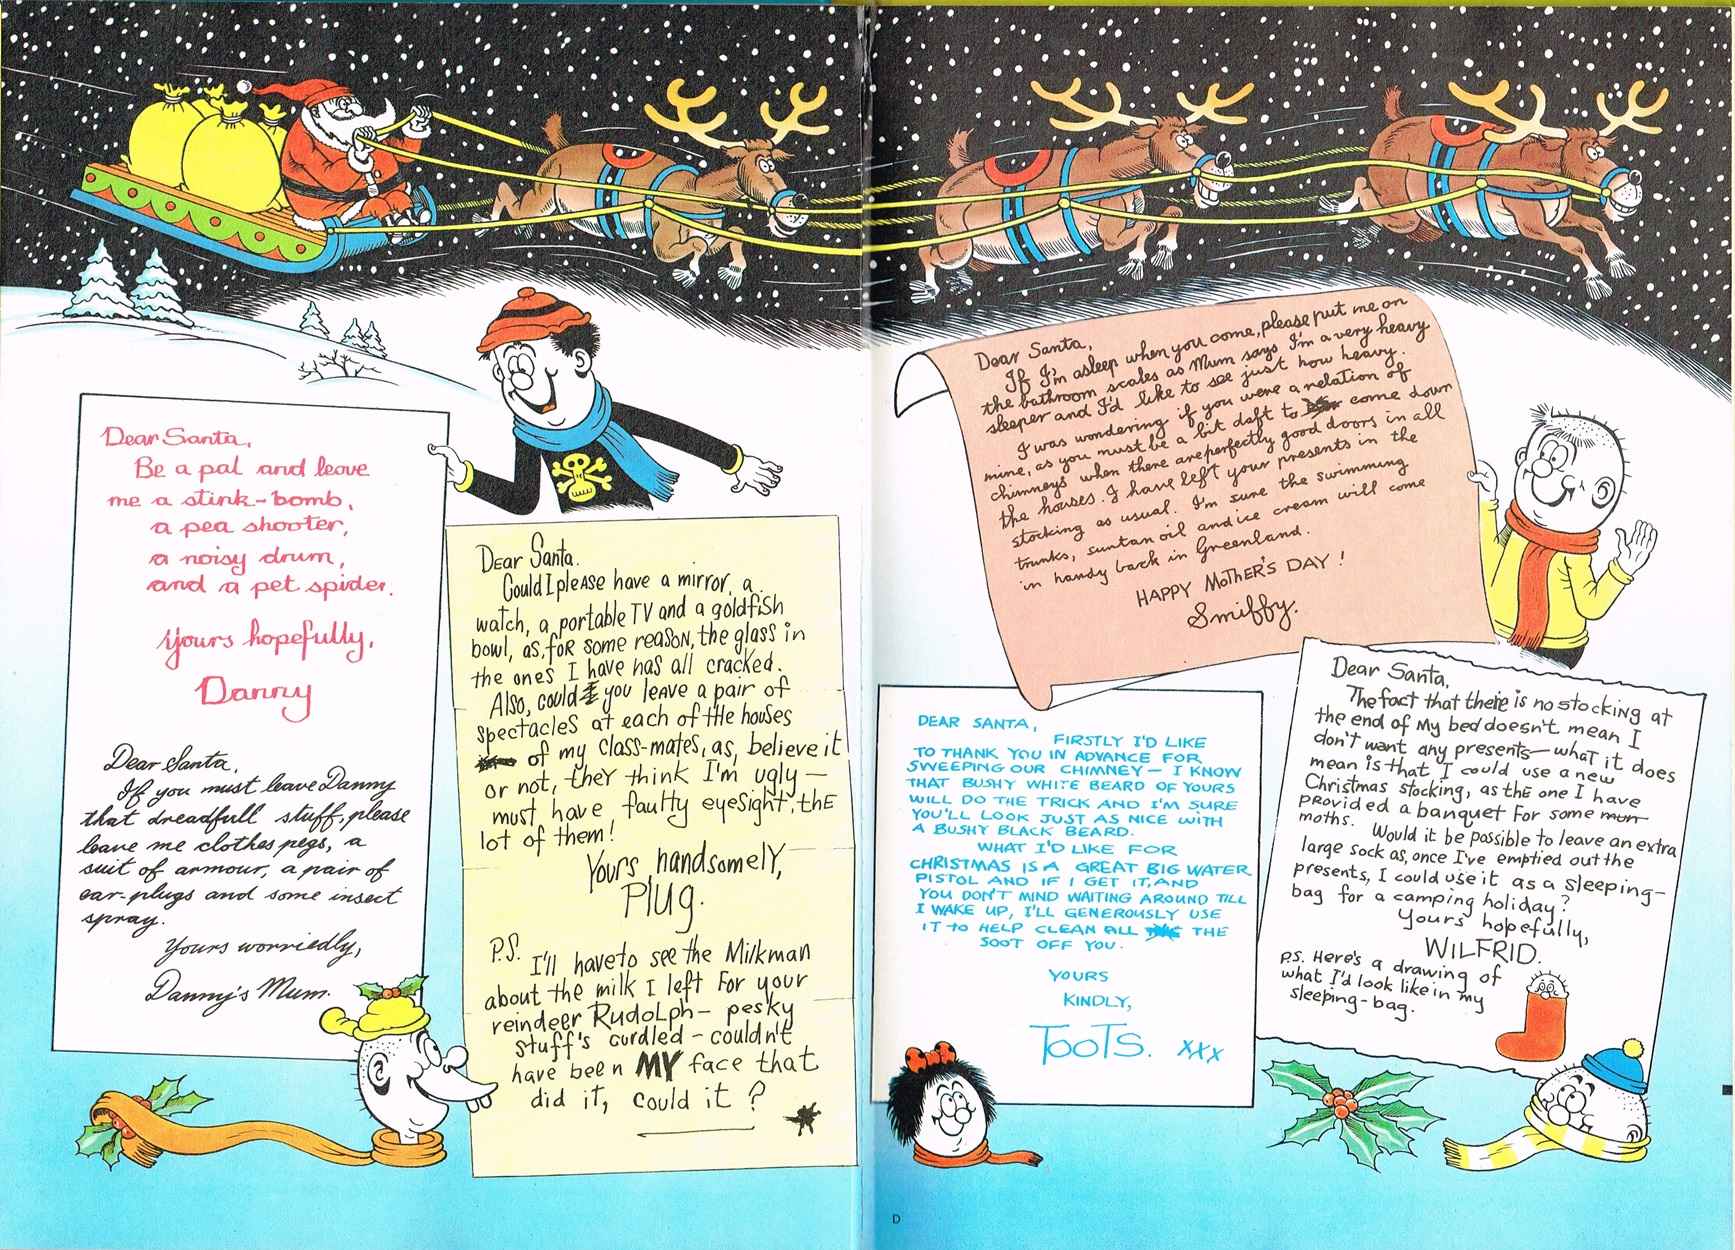 Dear Santa,
Be a pal and leave
me a stink-bomb,
a pea shooter,
a noisy drum,
and a pet spider.
Yours hopefully,
Danny
Dear Santa,
If you must leave Danny
that dreadfull stuff, please
leave me clothes pegs, a
suit of armour, a pair of
ear-plugs and some insect
spray.
Yours worriedly,
Danny's Mum.
Dear Santa.
Could I please have a mirror, a
watch, a portable TV and a goldfish
bowl, as, for some reason, the glass in
the ones I have has all cracked.
Also, could you leave a pair of
spectacles at each of the houses
of my class-mates, as, believe it
or not, they think I'm ugly—
must have faulty eyesight, the
lot of them!
Yours, handsomely,
Plug.
P.S. I'll have to see the Milkman
about the milk I left for your
reindeer Rudolph – pesky
stuff's curdled – couldn't
have been MY face that
did it, could it?
Dear Santa,
If I'm asleep when you come, please put me on
the bathroom scales as Mum says I'm a very heavy
sleeper and I'd like to see just how heavy.
I was wondering if you were a relation of
mine, as you must be a bit daft to come down
chimneys when there are perfectly good doors in all
the houses. I have left your presents in the
stocking as usual. I'm sure the swimming
trunks, suntan oil and ice cream will come
in handy back in Greenland.
HAPPY MOTHER'S DAY!
Smiffy.
DEAR SANTA,
FIRSTLY I'D LIKE
TO THANK YOU IN ADVANCE FOR
SWEEPING OUR CHIMNEY – I KNOW
THAT BUSHY WHITE BEARD OF YOURS
WILL DO THE TRICK AND I'M SURE
YOU'LL LOOK JUST AS NICE WITH
A BUSHY BLACK BEARD.
WHAT I'D LIKE FOR
CHRISTMAS IS A GREAT BIG WATER
PISTOL AND IF I GET IT, AND
YOU DON'T MIND WAITING AROUND TILL
I WAKE UP, I'LL GENEROUSLY USE
IT TO HELP CLEAN ALL THE
SOOT OFF YOU.
YOURS
KINDLY,
TOOTS. xxx
Dear Santa,
The fact that there is no stocking at
the end of my bed doesn't mean I
don't want any presents – what it does
mean is that I could use a new
Christmas stocking, as the one I have
provided a banquet for some mun
moths. Would it be possible to leave an extra
large sock as, once I've emptied out the
presents, I could use it as a sleeping-
bag for a camping holiday?
Yours hopefully,
WILFRID.
P.S. Here's a drawing of
what I'd look like in my
sleeping-bag.
D